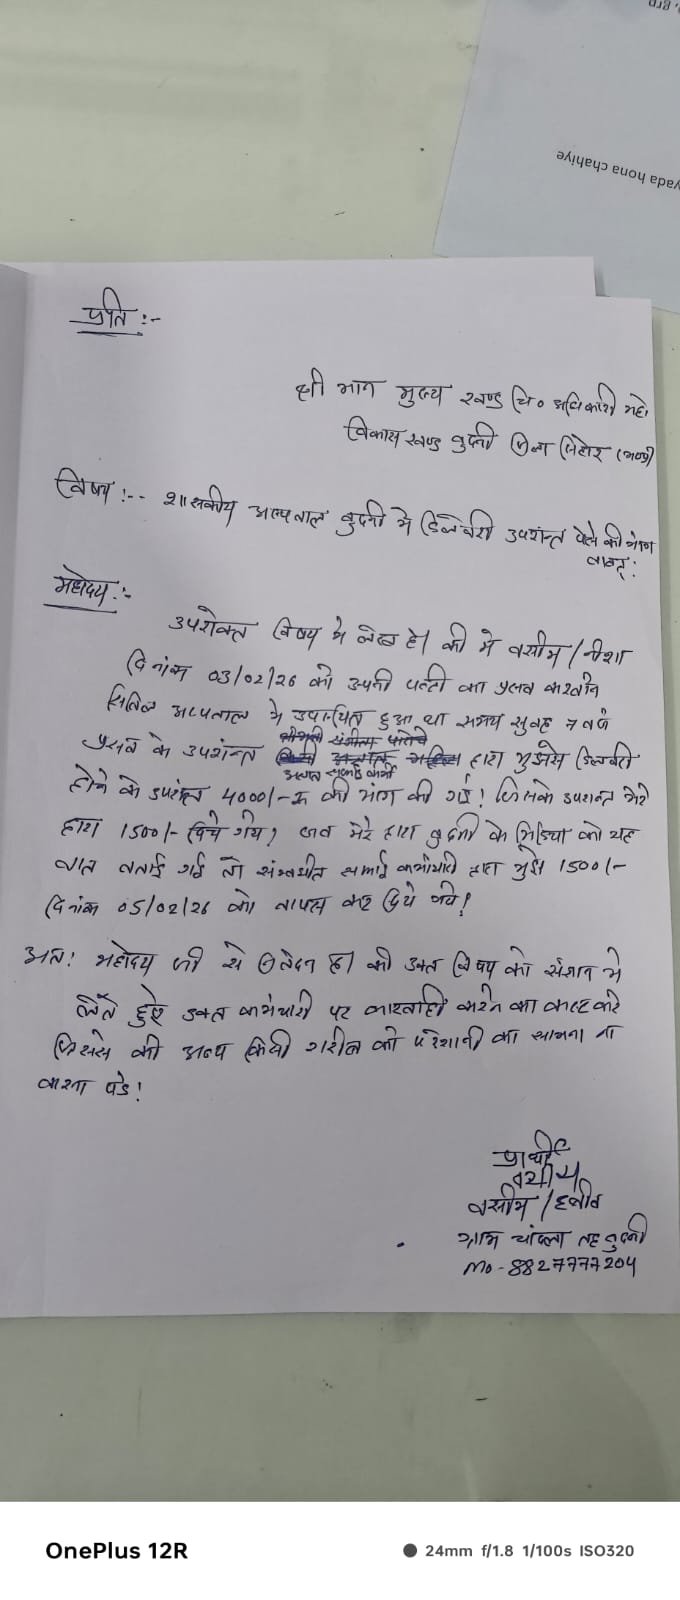 yada hona chahiye
प्रति :-
श्री मान मुख्य खण्ड चि० अधिकारी महो.
विकास खण्ड बुदनी जिला सिहोर (म०प्र)
विषय :-- शासकीय अस्पताल बुदनी मे डिलेवरी उपरान्त पैसे की मांग
बावत् :
महोदय :-
उपरोक्त विषय मे लेख है। की मे वसीम / नीशा
दिनांक 03/02/26 को अपनी पत्नी का प्रसव करवाने
सिविल अस्पताल मे उपास्थित हुआ था समय सुबह 7 बजे
प्रसव के उपरान्त द्वारा मुझसे डिलेवरी
सफाई कर्मी
होने के उपरांत 4000/-रू की मांग की गई! जिसके उपरान्त मेरे
द्वारा 1500/- दिये गये! जब मेरे द्वारा बुदनी के मिडिया को यह
बात बताई गई तो संम्बधीत सफाई कर्मचारी द्वारा मुझे 1500/-
दिनांक 05/02/26 को वापस कर दिये गये!
अत: महोदय जी से निवेदन है। की उक्त विषय को संज्ञान मे
लेते हुए उक्त कर्मचारी पर कारवाही करने का कष्ट करे
जिससे की अन्य किसी गरीब को परेशानी का सामना ना
करना पडे!
प्रार्थी
वसीम
वसीम /
ग्राम तह बुदनी
mo - 8827777204
OnePlus 12R
24mm f/1.8 1/100s ISO320